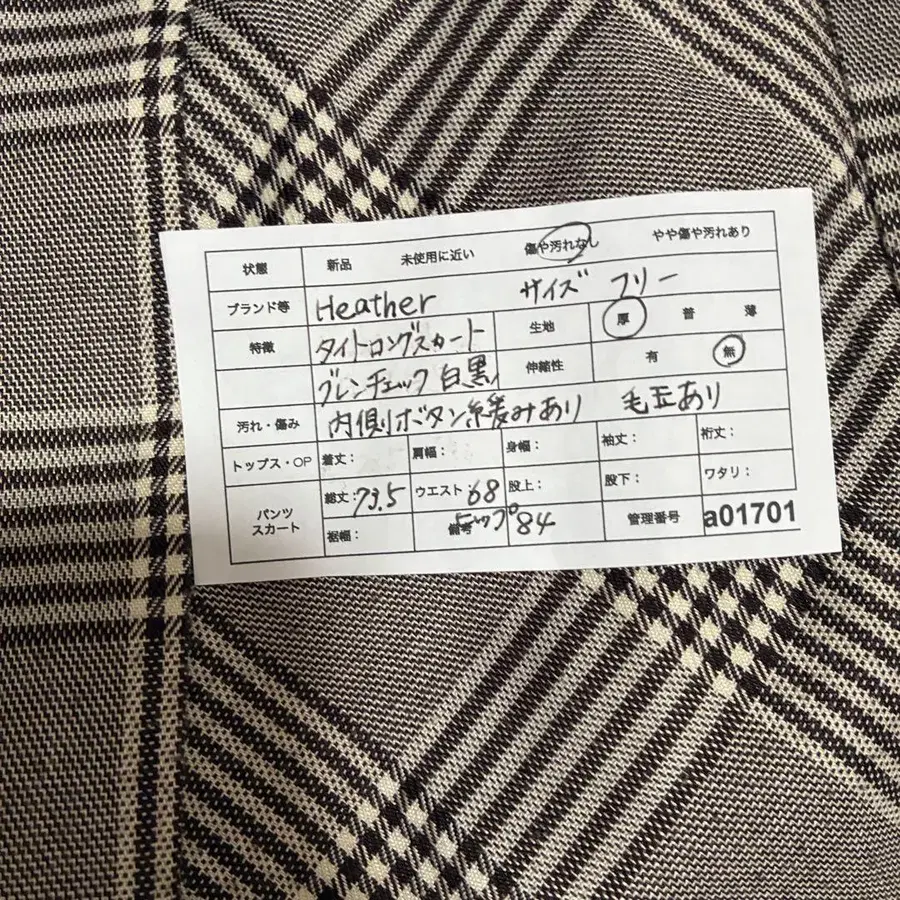 状態 新品 未使用に近い 傷や汚れなし やや傷や汚れあり
ブランド等 Heather サイズ フリー
特徴 タイトロングスカート 生地 厚 普 薄
グレンチェック 白黒 伸縮性 有 無
汚れ・傷み 内側ボタン糸緩みあり 毛玉あり
トップス・OP 着丈: 肩幅: 身幅: 袖丈: 裄丈:
パンツ スカート 総丈:73.5 ウエスト:68 股上: 股下: ワタリ:
裾幅: 備考 ヒップ 84 管理番号 a01701